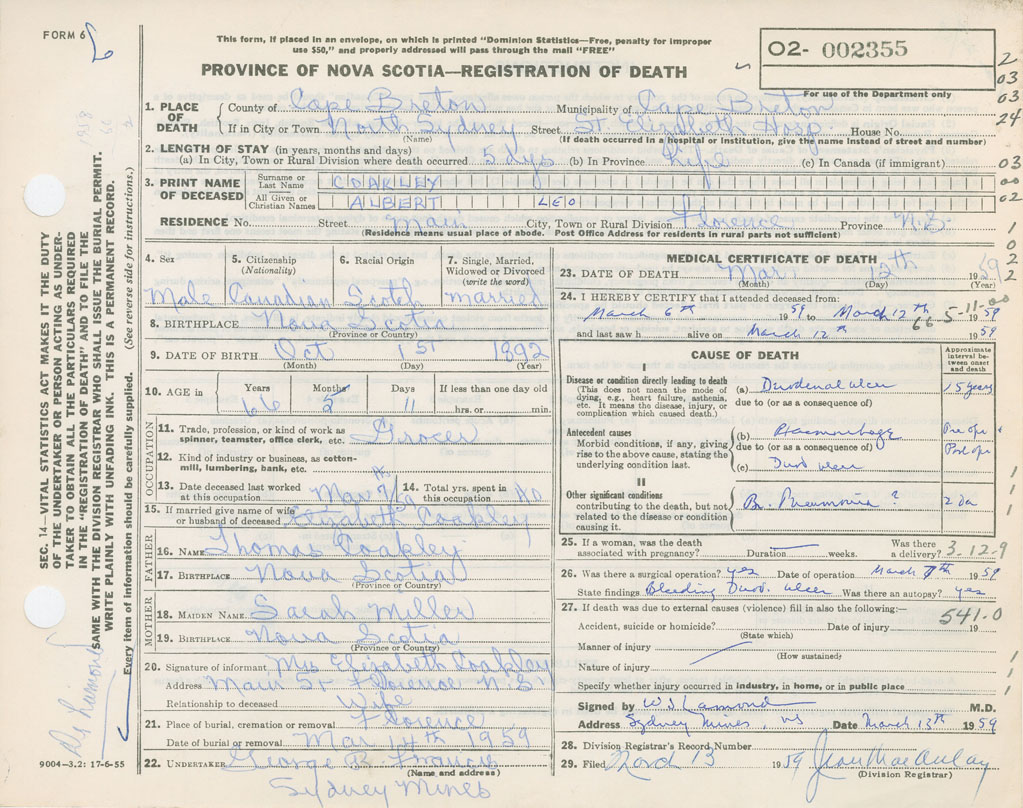 FORM 6
This form, if placed in an envelope, on which is printed "Dominion Statistics—Free, penalty for improper
use $50," and properly addressed will pass through the mail "FREE"
PROVINCE OF NOVA SCOTIA—REGISTRATION OF DEATH
O2- 002355
For use of the Department only
1. PLACE OF DEATH County of Cape Breton Municipality of Cape Breton
If in City or Town North Sydney Street St Elizabeth Hosp. House No.
(Name) (If death occurred in a hospital or institution, give the name instead of street and number)
2. LENGTH OF STAY (in years, months and days)
(a) In City, Town or Rural Division where death occurred 5 dys (b) In Province Life (c) In Canada (if immigrant)
3. PRINT NAME OF DECEASED Surname or Last Name COAKLEY
All Given or Christian Names ALBERT LEO
RESIDENCE No. Street Main City, Town or Rural Division Florence Province N.S.
(Residence means usual place of abode. Post Office Address for residents in rural parts not sufficient)
4. Sex Male
5. Citizenship (Nationality) Canadian
6. Racial Origin Scotch
7. Single, Married, Widowed or Divorced (write the word) married
8. BIRTHPLACE Nova Scotia
(Province or Country)
9. DATE OF BIRTH Oct 1st 1892
(Month) (Day) (Year)
10. AGE in Years Months Days If less than one day old
66 5 11 hrs. or min.
OCCUPATION
11. Trade, profession, or kind of work as
spinner, teamster, office clerk, etc. Grocer
12. Kind of industry or business, as cotton-
mill, lumbering, bank, etc.
13. Date deceased last worked
at this occupation Mar 7th/59
14. Total yrs. spent in
this occupation 40
15. If married give name of wife
or husband of deceased Elizabeth Coakley
FATHER
16. NAME Thomas Coakley
17. BIRTHPLACE Nova Scotia
(Province or Country)
MOTHER
18. MAIDEN NAME Sarah Miller
19. BIRTHPLACE Nova Scotia
(Province or Country)
20. Signature of informant Mrs Elizabeth Coakley
Address Main St Florence N.S.
Relationship to deceased Wife
21. Place of burial, cremation or removal Florence
Date of burial or removal Mar 14th 1959
22. UNDERTAKER George R. Francis
(Name and address)
Sydney Mines
9004-3.2: 17-6-55
MEDICAL CERTIFICATE OF DEATH
23. DATE OF DEATH Mar. 12th 1959
(Month) (Day) (Year)
24. I HEREBY CERTIFY that I attended deceased from:
March 6th 1959 to March 12th 1959
66-5-11-00
and last saw h alive on March 12th 1959
CAUSE OF DEATH
Approximate interval between onset and death
I
Disease or condition directly leading to death
(This does not mean the mode of
dying, e.g., heart failure, asthenia,
etc. It means the disease, injury, or
complication which caused death.)
(a) Duodenal ulcer 15 years
due to (or as a consequence of)
Antecedent causes
Morbid conditions, if any, giving
rise to the above cause, stating the
underlying condition last.
(b) Haemorrhage Pre op &
due to (or as a consequence of) Post op
(c) Duod ulcer
II
Other significant conditions
contributing to the death, but not
related to the disease or condition
causing it.
Br. Pneumonia ? 2 da
25. If a woman, was the death
associated with pregnancy? Duration weeks.
Was there
a delivery?
3-12-9
26. Was there a surgical operation? yes Date of operation March 7th 1959
State findings Bleeding Duod. ulcer Was there an autopsy? yes
27. If death was due to external causes (violence) fill in also the following:—
541.0
Accident, suicide or homicide? Date of injury 19
(State which)
Manner of injury
(How sustained)
Nature of injury
Specify whether injury occurred in industry, in home, or in public place
Signed by W.S. Lamond M.D.
Address Sydney Mines, NS Date March 13th 1959
28. Division Registrar's Record Number
29. Filed March 13 1959 Jean MacAulay
(Division Registrar)
SEC. 14—VITAL STATISTICS ACT MAKES IT THE DUTY
OF THE UNDERTAKER OR PERSON ACTING AS UNDER-
TAKER TO OBTAIN ALL THE PARTICULARS REQUIRED
IN THE "REGISTRATION OF DEATH" AND TO FILE THE
SAME WITH THE DIVISION REGISTRAR WHO SHALL ISSUE THE BURIAL PERMIT.
WRITE PLAINLY WITH UNFADING INK. THIS IS A PERMANENT RECORD.
Every item of information should be carefully supplied. (See reverse side for instructions.)
2
03
03
24
03
00
02
1
0
2
2